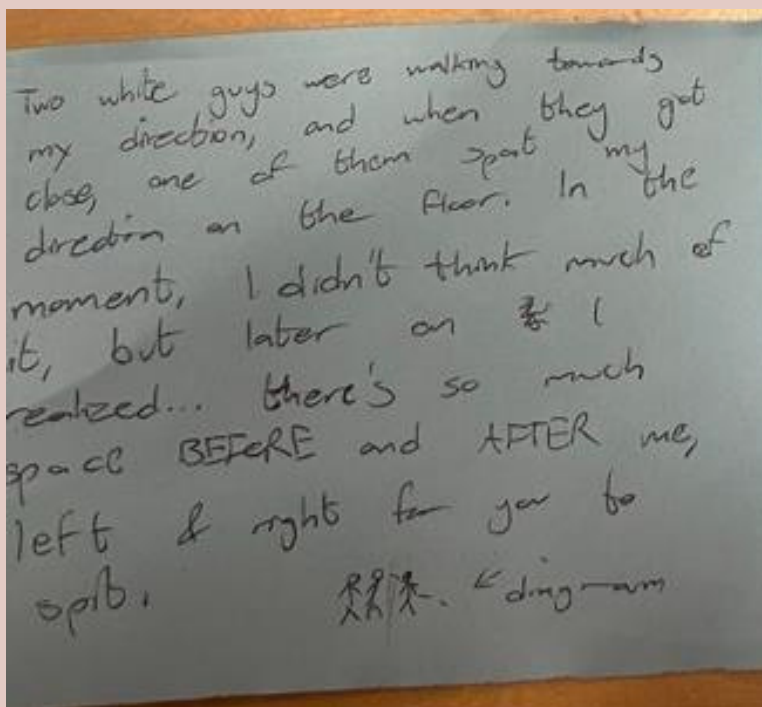 Two white guys were walking towards
my direction, and when they got
close, one of them spat my
direction on the floor. In the
moment, I didn't think much of
it, but later on I
realized... there's so much
space BEFORE and AFTER me,
left & right for you to
spit. ← diagram